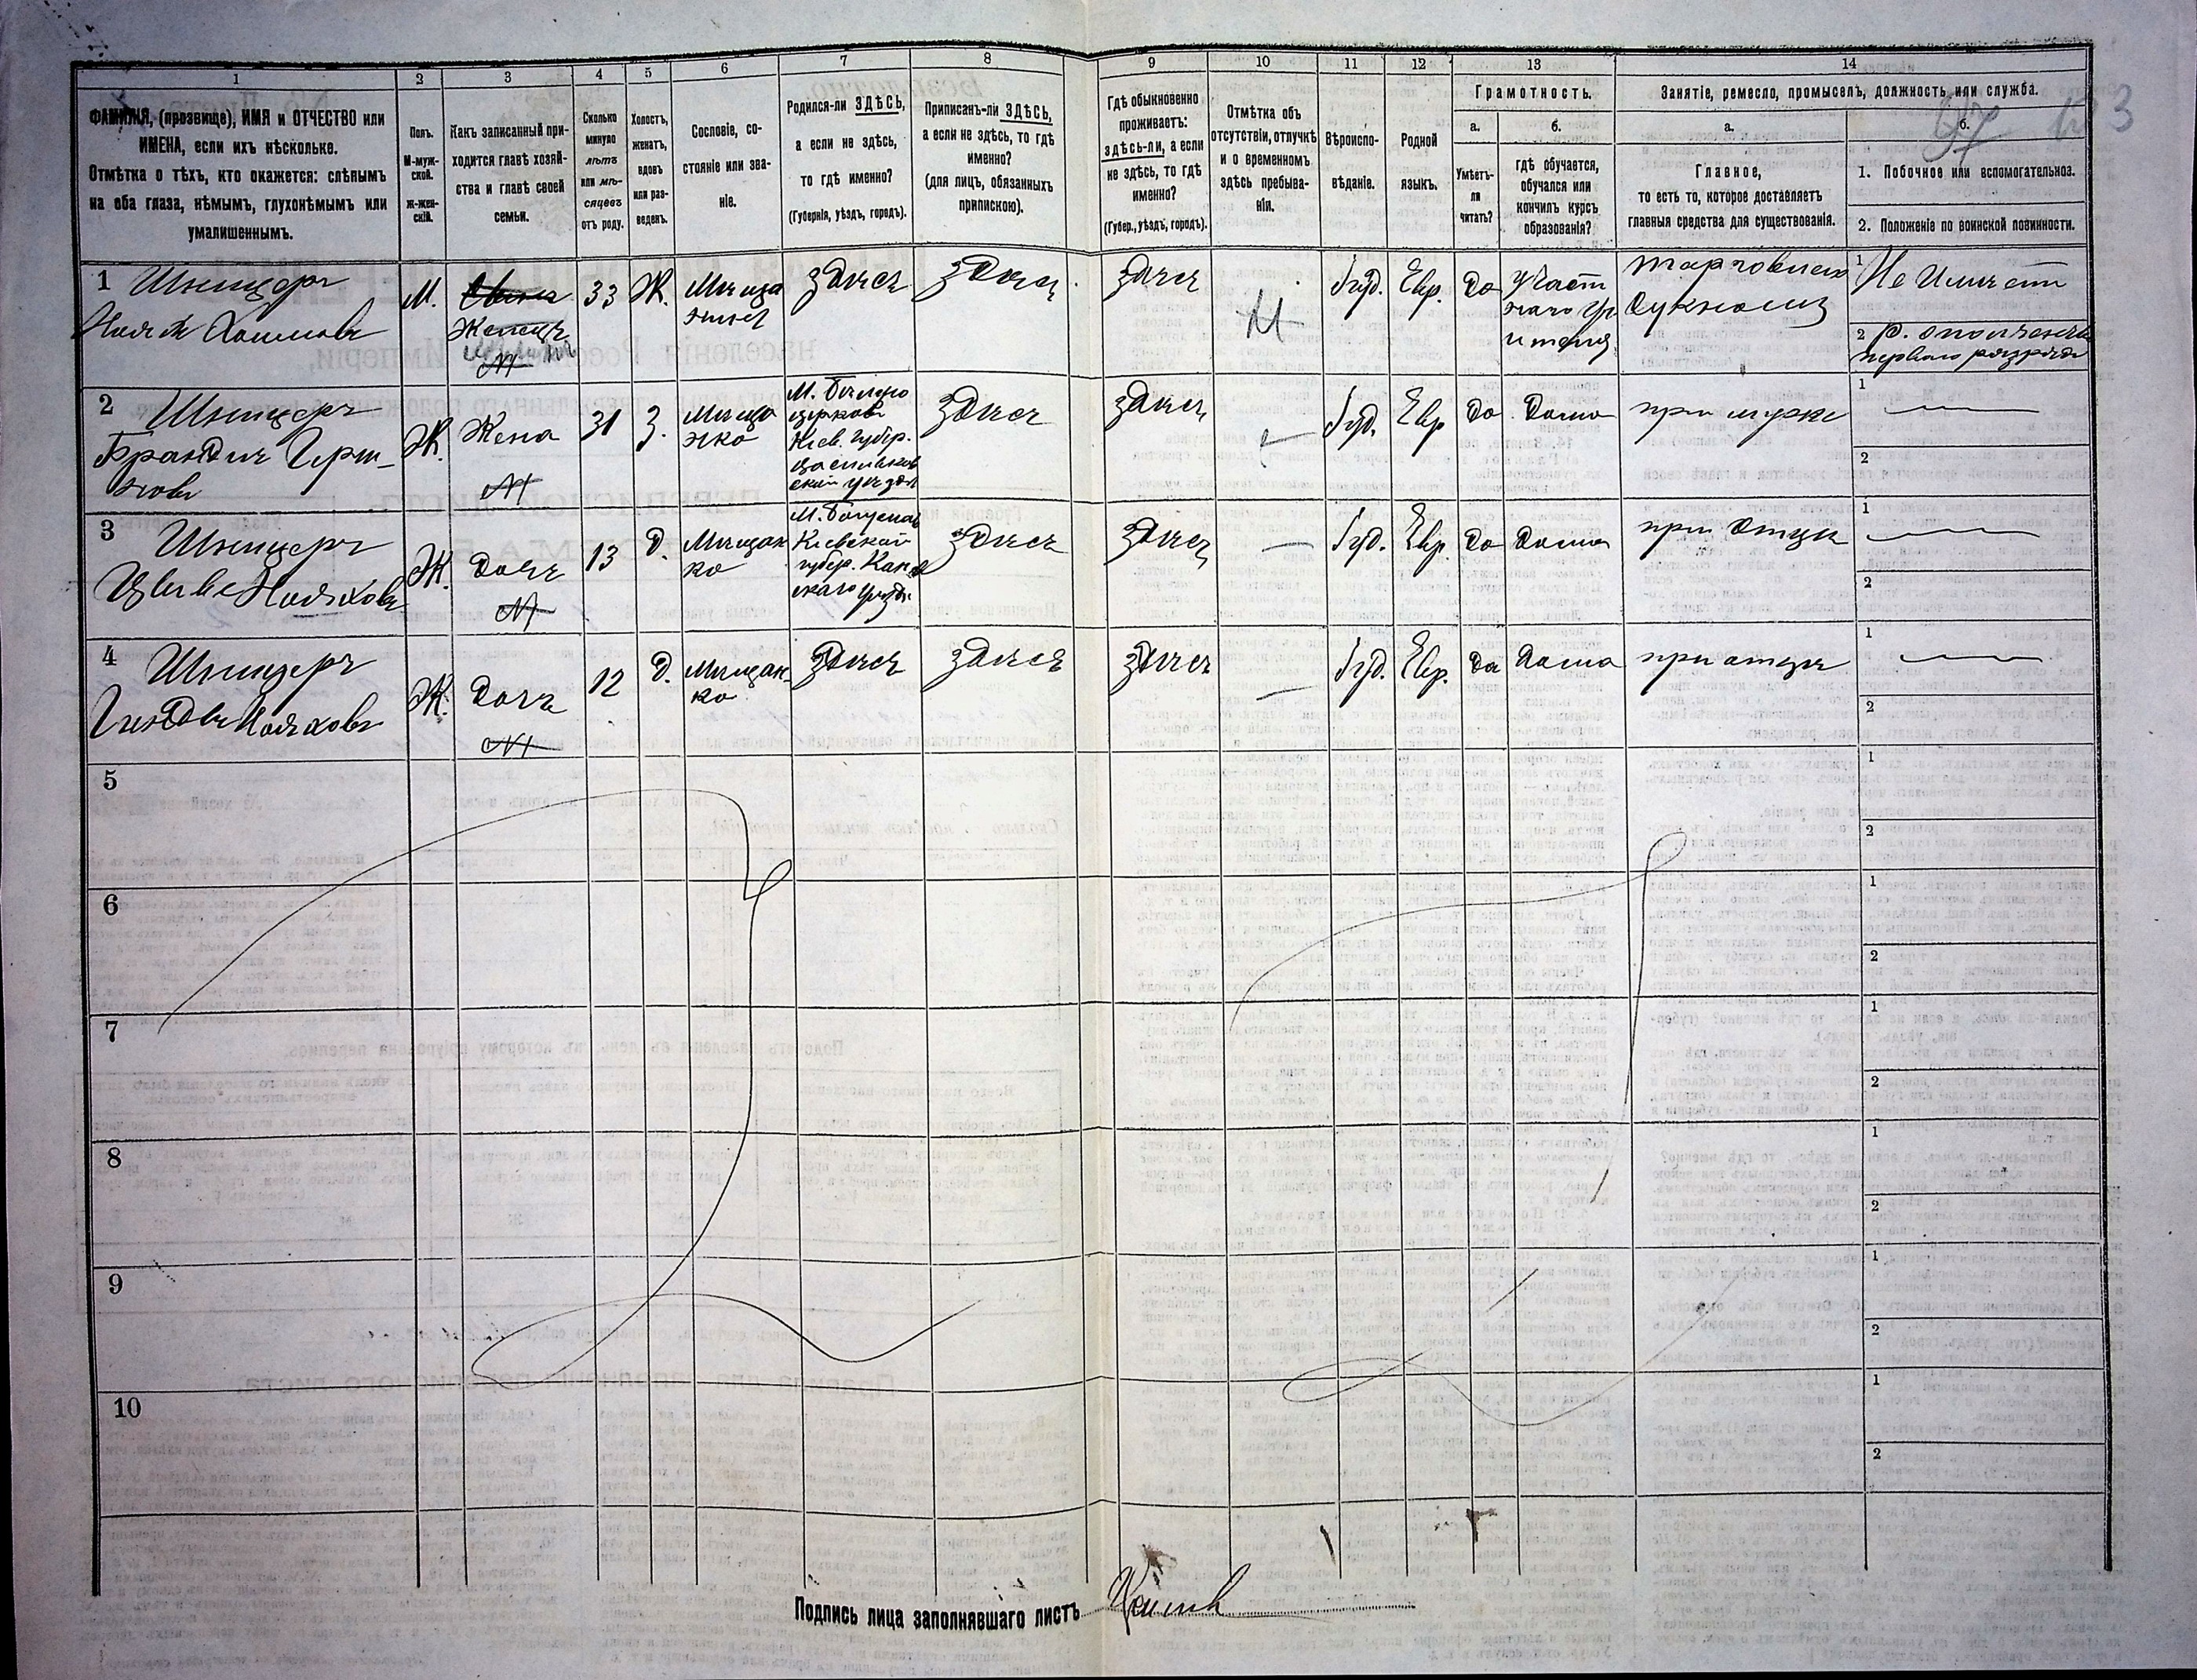 1 2 3 4 5 6 7 8 9 10 11 12 13 14
ФАМИЛІЯ, (прозвище), ИМЯ и ОТЧЕСТВО или
ИМЕНА, если ихъ нѣсколько.
Отмѣтка о тѣхъ, кто окажется: слѣпымъ
на оба глаза, нѣмымъ, глухонѣмымъ или
умалишеннымъ.
Полъ.
М-муж-
ской.
Ж-жен-
скій.
Какъ записанный при-
ходится главѣ хозяй-
ства и главѣ своей
семьи.
Сколько
минуло
лѣтъ
или мѣ-
сяцевъ
отъ роду.
Холостъ,
женатъ,
вдовъ
или раз-
веденъ.
Сословіе, со-
стояніе или зва-
ніе.
Родился-ли ЗДѢСЬ,
а если не здѣсь,
то гдѣ именно?
(Губернія, уѣздъ, городъ).
Приписанъ-ли ЗДѢСЬ,
а если не здѣсь, то гдѣ
именно?
(для лицъ, обязанныхъ
припискою).
Гдѣ обыкновенно
проживаетъ:
здѣсь-ли, а если
не здѣсь, то гдѣ
именно?
(Губер., уѣздъ, городъ).
Отмѣтка объ
отсутствіи, отлучкѣ
и о временномъ
здѣсь пребыва-
ніи.
Вѣроиспо-
вѣданіе.
Родной
языкъ.
Грамотность.
а.
Умѣетъ-
ли
читать?
б.
Гдѣ обучается,
обучался или
кончилъ курсъ
образованія?
Занятіе, ремесло, промыселъ, должность или служба.
а.
Главное,
то есть то, которое доставляетъ
главныя средства для существованія.
б.
1. Побочное или вспомогательное.
2. Положеніе по воинской повинности.
1 Шницеръ
М.
33
Ж.
Мѣща
нинъ
здѣсь
здѣсь
здѣсь
Іуд.
Евр.
да
Торговле
Сукномъ
1 Не Имѣетъ
2 Р. ополченецъ
перваго разряда
2 Шницеръ
Ж.
Жена
31
З.
Мѣща
нка
М. Бѣлая
церковь
Кіев. губер.
Васильков
скій уѣздъ
здѣсь
здѣсь
Іуд.
Евр
да
Дома
при мужѣ
1
2
3 Шницеръ
Ж.
Дочь
13
Д.
Мѣщан
ка
М. Богуслав
Кіевской
губер. Канев
скаго уѣзда
здѣсь
здѣсь
Іуд.
Евр.
да
Дома
при отцѣ
1
2
4 Шницеръ
Ж.
Дочь
12
Д.
Мѣщан-
ка
здѣсь
здѣсь
здѣсь
Іуд.
Евр.
да
Дома
при отцѣ
1
2
5
1
2
6
1
2
7
1
2
8
1
2
9
1
2
10
1
2
Подпись лица заполнявшаго листъ